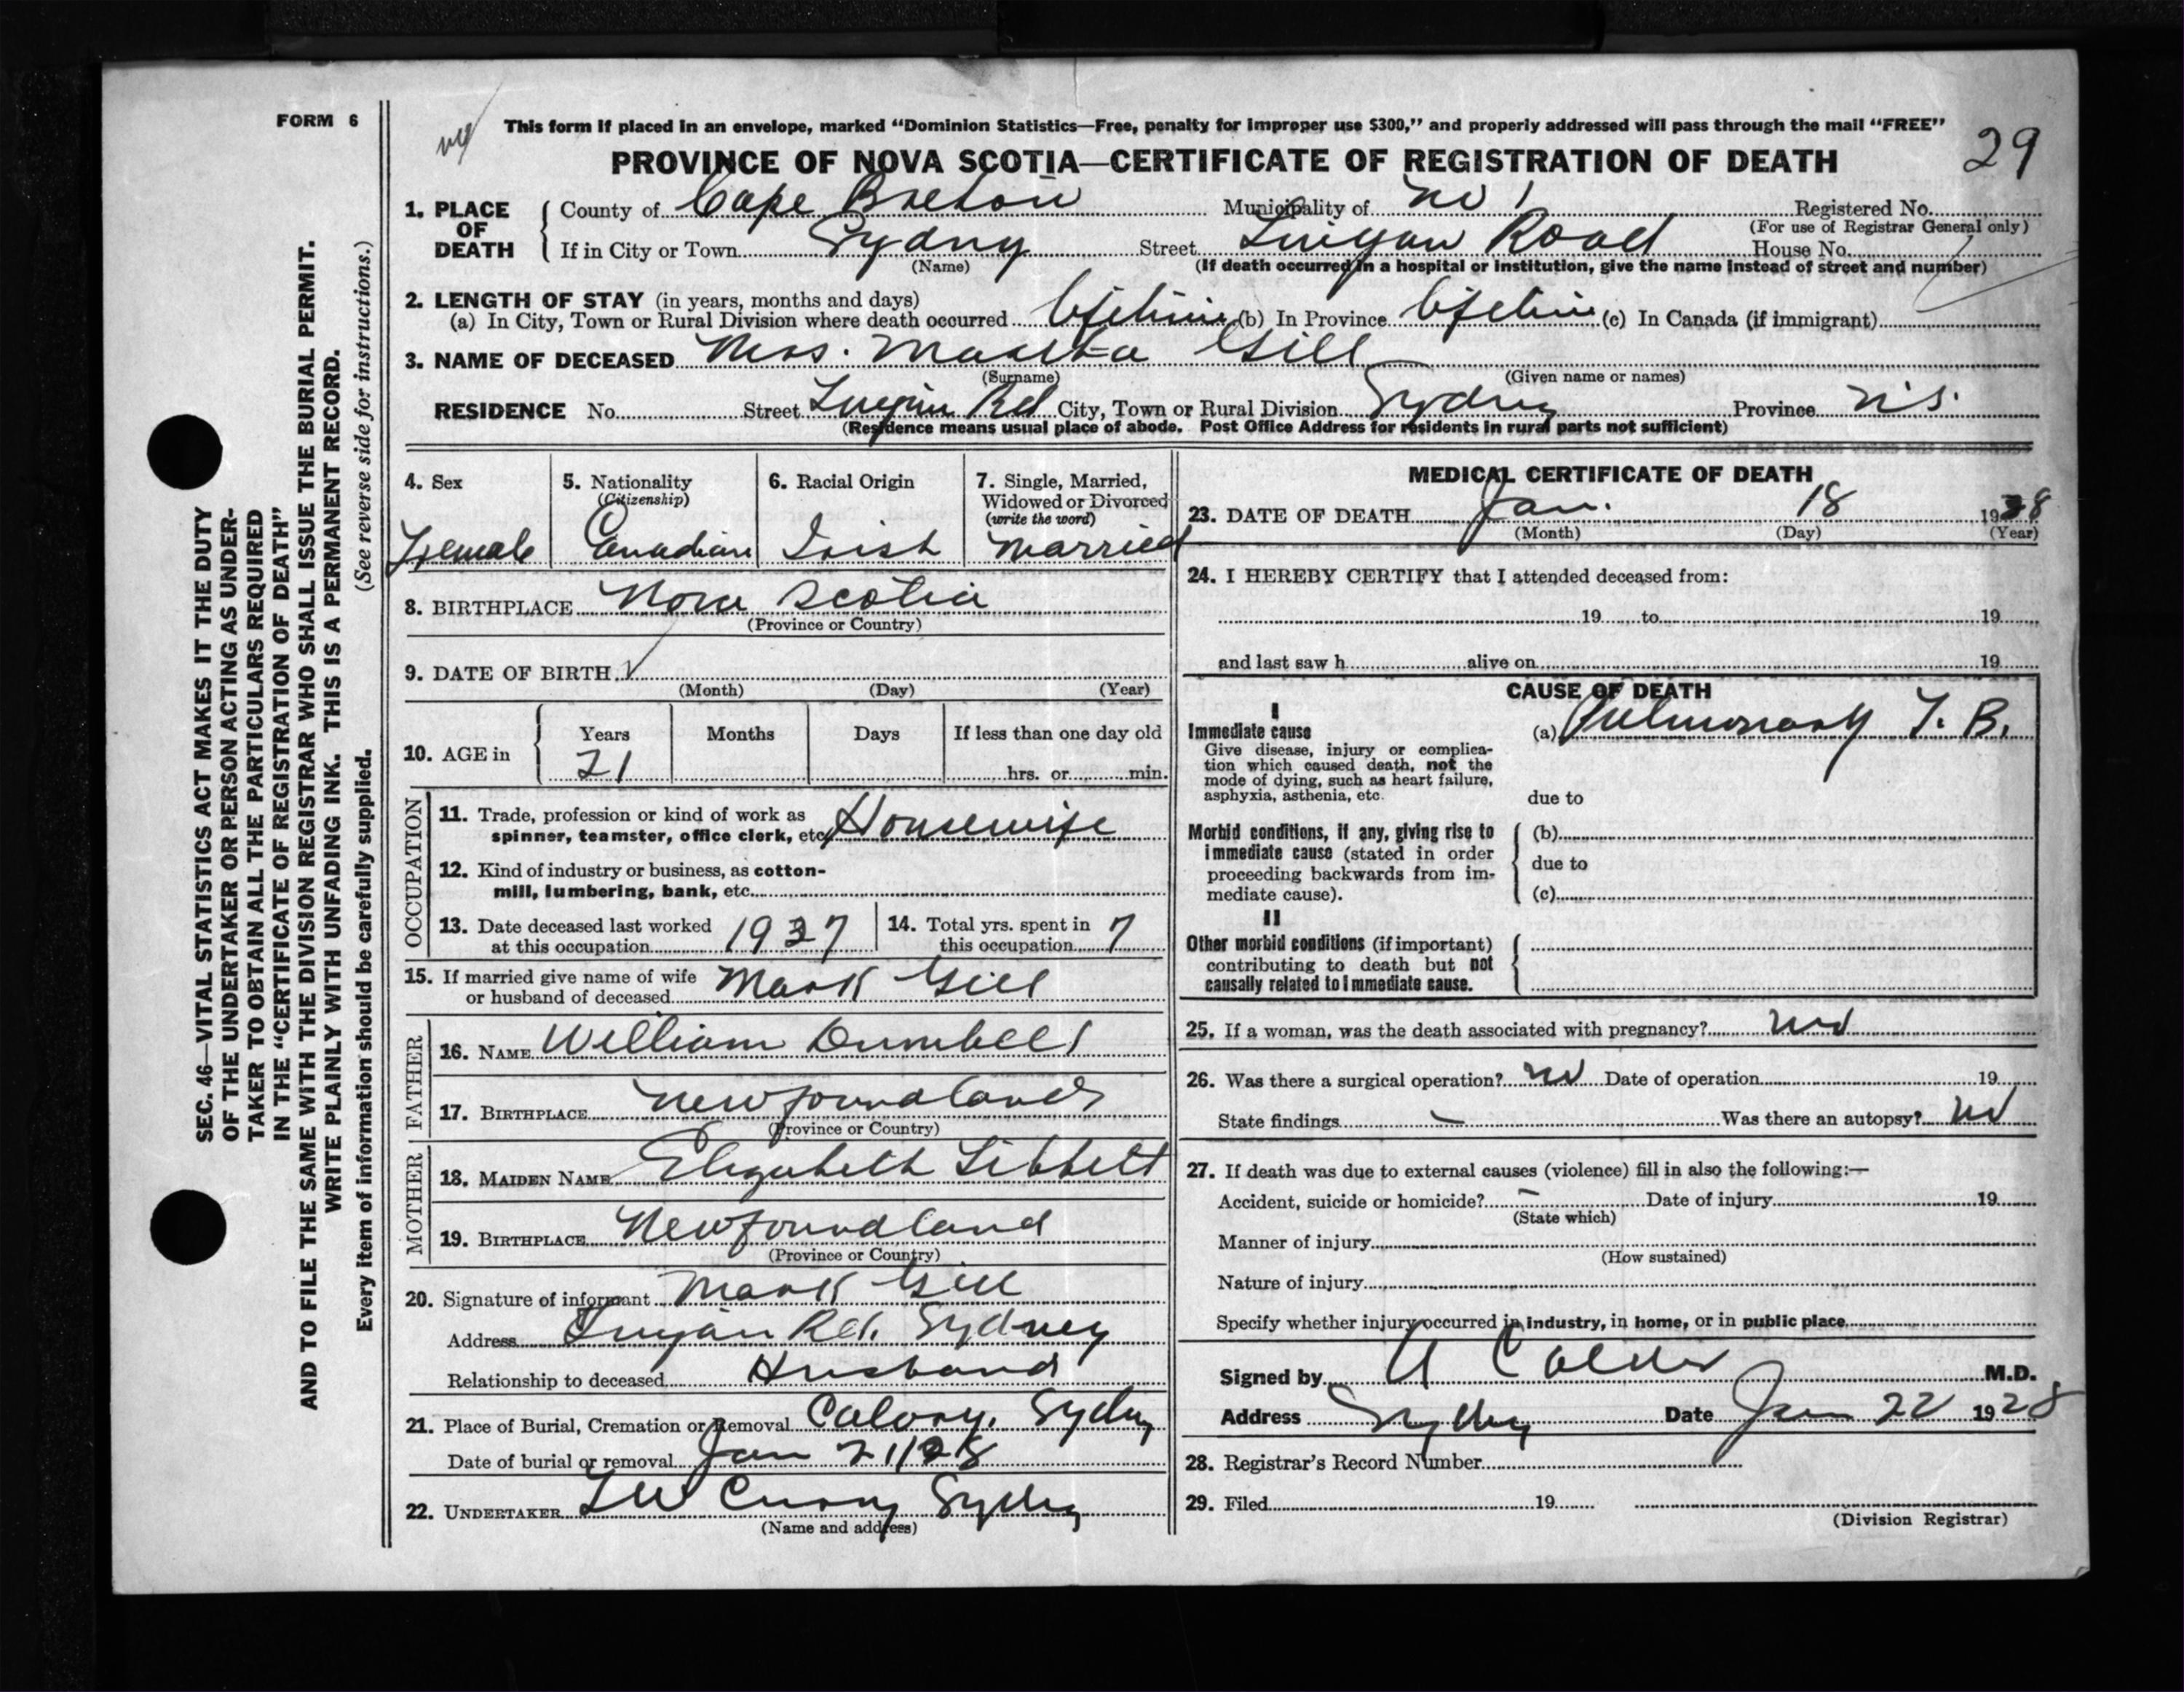 FORM 6
SEC. 46—VITAL STATISTICS ACT MAKES IT THE DUTY
OF THE UNDERTAKER OR PERSON ACTING AS UNDER-
TAKER TO OBTAIN ALL THE PARTICULARS REQUIRED
IN THE "CERTIFICATE OF REGISTRATION OF DEATH"
AND TO FILE THE SAME WITH THE DIVISION REGISTRAR WHO SHALL ISSUE THE BURIAL PERMIT.
WRITE PLAINLY WITH UNFADING INK. THIS IS A PERMANENT RECORD.
Every item of information should be carefully supplied. (See reverse side for instructions.)
This form if placed in an envelope, marked "Dominion Statistics—Free, penalty for improper use $300," and properly addressed will pass through the mail "FREE"
PROVINCE OF NOVA SCOTIA—CERTIFICATE OF REGISTRATION OF DEATH 29
1. PLACE OF DEATH County of Cape Breton Municipality of No 1 Registered No.
(For use of Registrar General only)
If in City or Town Sydney Street Lingan Road House No.
(Name) (If death occurred in a hospital or institution, give the name instead of street and number)
2. LENGTH OF STAY (in years, months and days)
(a) In City, Town or Rural Division where death occurred Lifetime (b) In Province Lifetime (c) In Canada (if immigrant)
3. NAME OF DECEASED Mrs. Martha Gill
(Surname) (Given name or names)
RESIDENCE No. Street Lingan Rd City, Town or Rural Division Sydney Province N.S.
(Residence means usual place of abode. Post Office Address for residents in rural parts not sufficient)
4. Sex Female
5. Nationality (Citizenship) Canadian
6. Racial Origin Irish
7. Single, Married, Widowed or Divorced (write the word) Married
8. BIRTHPLACE Nova Scotia
(Province or Country)
9. DATE OF BIRTH
(Month) (Day) (Year)
10. AGE in Years Months Days If less than one day old
21 hrs. or min.
OCCUPATION
11. Trade, profession or kind of work as
spinner, teamster, office clerk, etc. Housewife
12. Kind of industry or business, as cotton-
mill, lumbering, bank, etc.
13. Date deceased last worked
at this occupation 1927
14. Total yrs. spent in
this occupation 7
15. If married give name of wife
or husband of deceased Mark Gill
FATHER
16. NAME William Dumbell
17. BIRTHPLACE Newfoundland
(Province or Country)
MOTHER
18. MAIDEN NAME Elizabeth Tibbett
19. BIRTHPLACE Newfoundland
(Province or Country)
20. Signature of informant Mark Gill
Address Lingan Rd. Sydney
Relationship to deceased Husband
21. Place of Burial, Cremation or Removal Calvary. Sydney
Date of burial or removal Jan 21/28
22. UNDERTAKER Curry Sydney
(Name and address)
MEDICAL CERTIFICATE OF DEATH
23. DATE OF DEATH Jan. 18 1928
(Month) (Day) (Year)
24. I HEREBY CERTIFY that I attended deceased from:
19 to 19
and last saw h alive on 19
CAUSE OF DEATH
I
Immediate cause (a) Pulmonary T. B.
Give disease, injury or complica-
tion which caused death, not the
mode of dying, such as heart failure,
asphyxia, asthenia, etc. due to
Morbid conditions, if any, giving rise to (b)
immediate cause (stated in order
proceeding backwards from im- due to
mediate cause). (c)
II
Other morbid conditions (if important)
contributing to death but not
causally related to immediate cause.
25. If a woman, was the death associated with pregnancy? no
26. Was there a surgical operation? no Date of operation 19
State findings — Was there an autopsy? no
27. If death was due to external causes (violence) fill in also the following:—
Accident, suicide or homicide? — Date of injury 19
(State which)
Manner of injury
(How sustained)
Nature of injury
Specify whether injury occurred in industry, in home, or in public place
Signed by A Calder M.D.
Address Sydney Date Jan 22 1928
28. Registrar's Record Number
29. Filed 19
(Division Registrar)